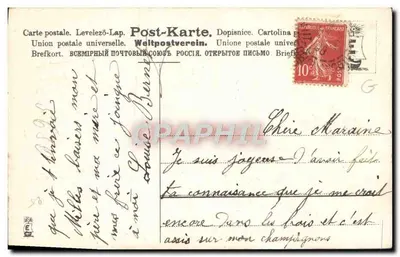 Carte postale. Levelező-Lap. Post-Karte. Dopisnice. Cartolina
Union postale universelle. Weltpostverein. Unione postale univer
Brefkort. ВСЕМІРНЫЙ ПОЧТОВЫЙ СОЮЗЪ РОССІЯ. ОТКРЫТОЕ ПИСЬМО Brief
10c
G
Chère Maraine
Je suis joyeuse d'avoir fait
ta connaisance que je me croit
encore dans les bois et c'est
assis sur mon champignons
que je t'envoie
Milles baisers mon
père et ma mère et
mes frère ce joingne
à moi Louise